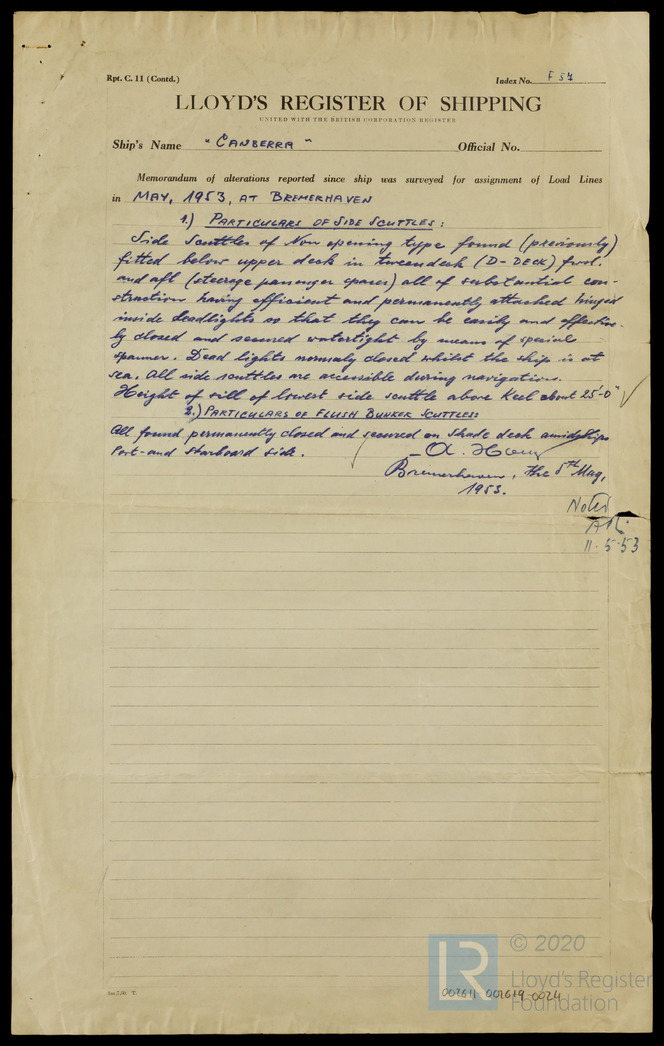 Rpt. C. 11 (Contd.)
Index No. F 54
LLOYD'S REGISTER OF SHIPPING
UNITED WITH THE BRITISH CORPORATION REGISTER
Ship's Name "CANBERRA" Official No.
Memorandum of alterations reported since ship was surveyed for assignment of Load Lines
in MAY, 1953, AT BREMERHAVEN
1.) PARTICULARS OF SIDE SCUTTLES:
Side Scuttles of Non opening type found (previously)
fitted below upper deck in tweendeck (D-DECK) fwd.
and aft (steerage passenger spaces) all of substantial con-
struction having efficient and permanently attached hinged
inside deadlights so that they can be easily and effective-
ly closed and secured watertight by means of special
spanner. Dead lights normaly closed whilst the ship is at
sea. All side scuttles are accessible during navigation.
Height of sill of lowest side scuttle above Keel about 25'-0"
2.) PARTICULARS OF FLUSH BUNKER SCUTTLES
All found permanently closed and secured on Shade deck amidships
Port- and Starboard side.
Bremerhaven, the 5th May,
1953.
Noted
11.5.53
© 2020
Lloyd's Register
Foundation
002611-002619-0024